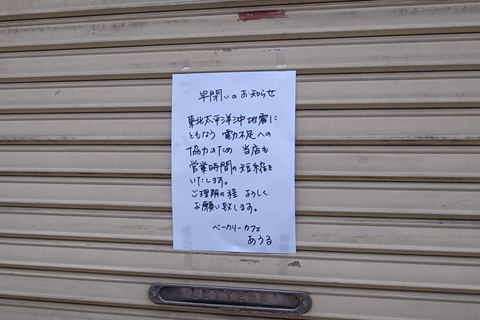 早閉いのお知らせ
東北太平洋沖地震に
ともなう電力不足への
協力のため 当店も
営業時間の短縮を
いたします。
ご理解の程 よろしく
お願い致します。
ベーカリーカフェ
あうる